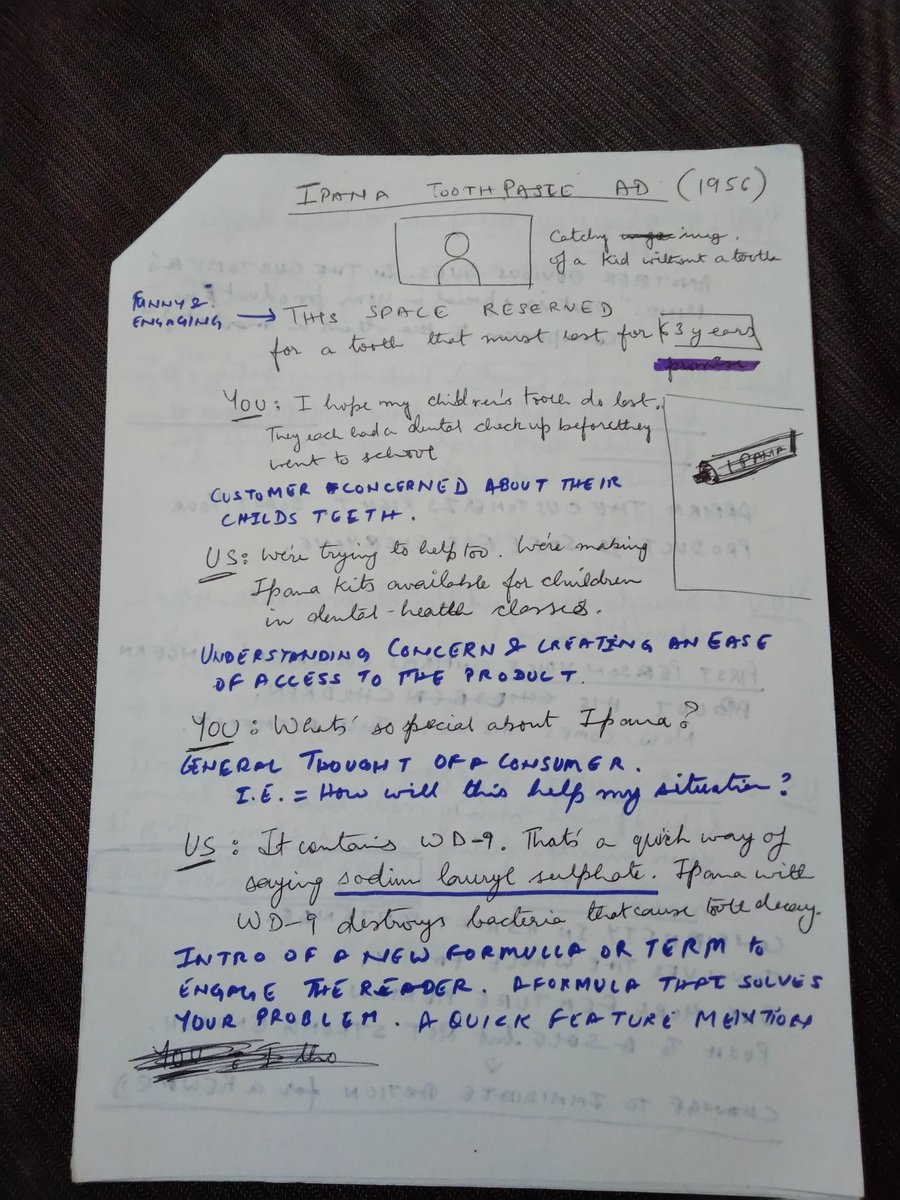 IPANA TOOTHPASTE AD (1956)
Catchy img.
of a kid without a tooth
FUNNY &
ENGAGING → THIS SPACE RESERVED
for a tooth that must last for 63 years
promise
YOU: I hope my children's tooth do last.
They each had a dental check up before they
went to school
IPANA
CUSTOMER CONCERNED ABOUT THEIR
CHILDS TEETH.
US: We're trying to help too. We're making
Ipana kits available for children
in dental-health classes.
UNDERSTANDING CONCERN & CREATING AN EASE
OF ACCESS TO THE PRODUCT.
YOU: What's so special about Ipana?
GENERAL THOUGHT OF A CONSUMER.
I.E. = How will this help my situation?
US: It contains WD-9. That's a quick way of
saying sodium lauryl sulphate. Ipana with
WD-9 destroys bacteria that cause tooth decay.
INTRO OF A NEW FORMULLA OR TERM to
ENGAGE THE READER. A FORMULA THAT SOLVES
YOUR PROBLEM. A QUICK FEATURE MENTION
YOU: I tho